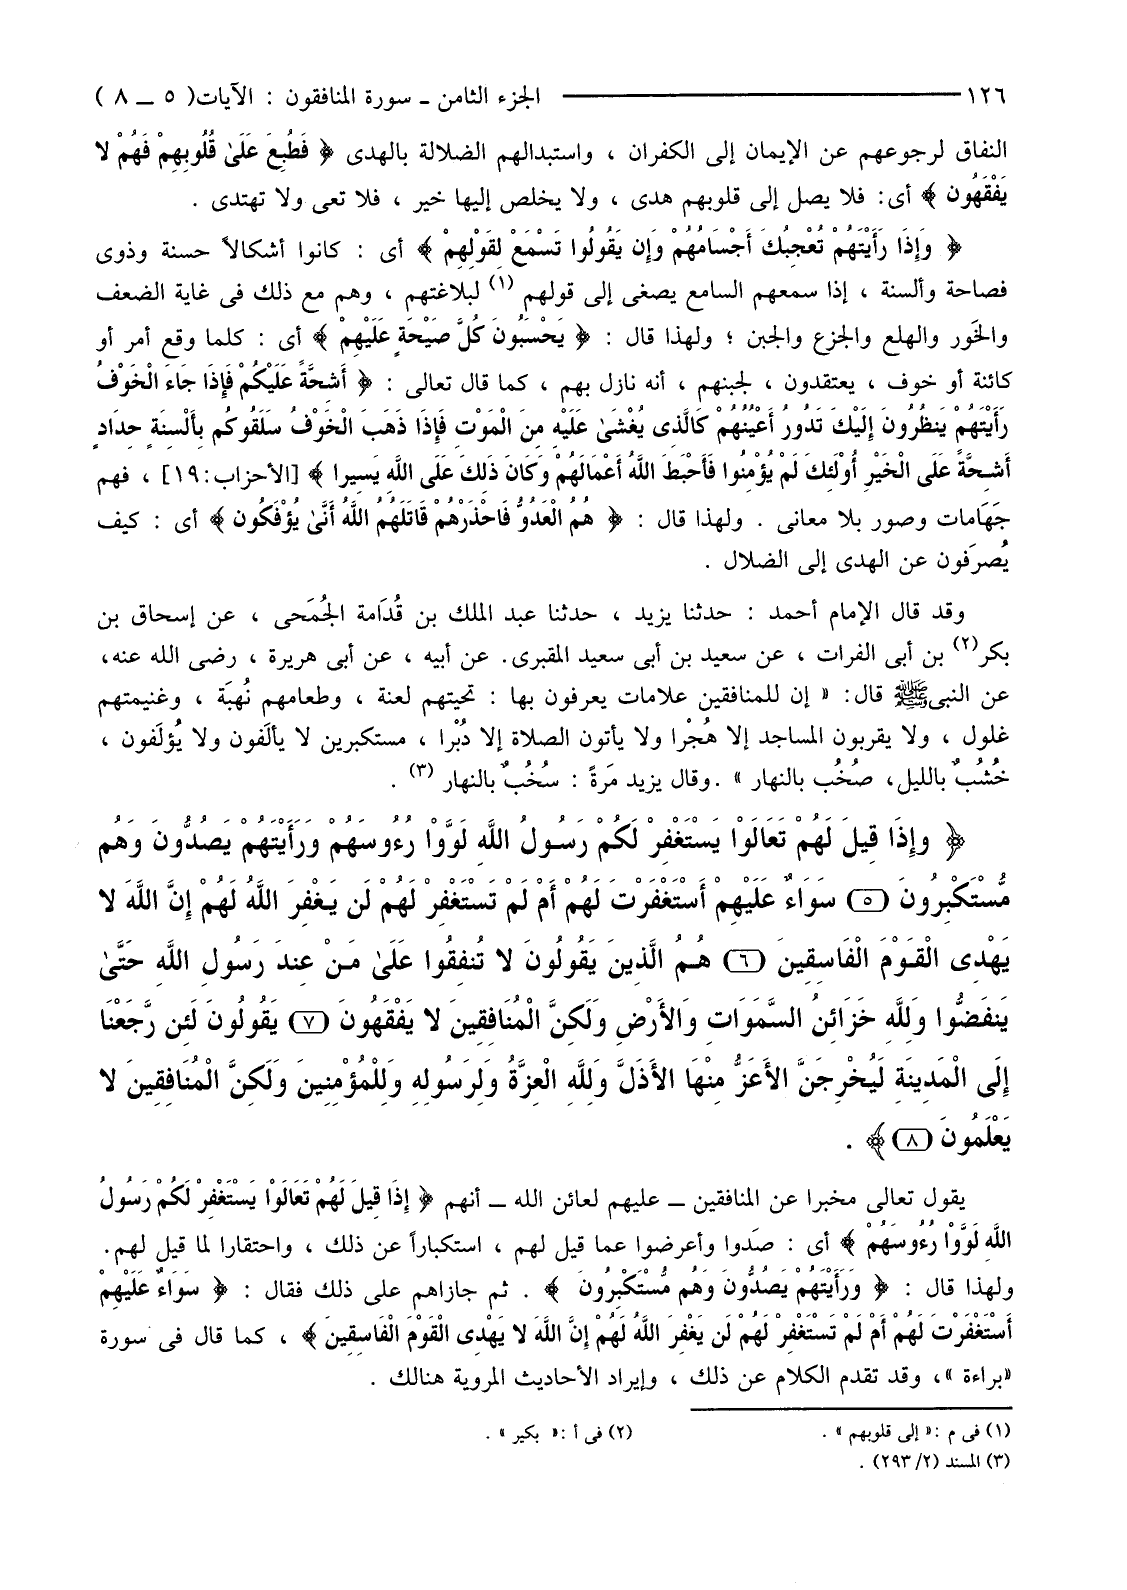 ١٢٦ ـــــــــــــــــــــــــــــ الجزء الثامن ـ سورة المنافقون : الآيات( ٥ ــ ٨ )
النفاق لرجوعهم عن الإيمان إلى الكفران ، واستبدالهم الضلالة بالهدى ﴿ فَطُبِعَ عَلَىٰ قُلُوبِهِمْ فَهُمْ لا
يَفْقَهُون ﴾ أى: فلا يصل إلى قلوبهم هدى ، ولا يخلص إليها خير ، فلا تعى ولا تهتدى .
﴿ وَإِذَا رَأَيْتَهُمْ تُعْجِبُكَ أَجْسَامُهُمْ وَإِن يَقُولُوا تَسْمَعْ لِقَوْلِهِمْ ﴾ أى : كانوا أشكالاً حسنة وذوى
فصاحة وألسنة ، إذا سمعهم السامع يصغى إلى قولهم (١) لبلاغتهم ، وهم مع ذلك فى غاية الضعف
والخَور والهلع والجزع والجبن ؛ ولهذا قال : ﴿ يَحْسَبُونَ كُلَّ صَيْحَةٍ عَلَيْهِمْ ﴾ أى : كلما وقع أمر أو
كائنة أو خوف ، يعتقدون ، لجبنهم ، أنه نازل بهم ، كما قال تعالى : ﴿ أَشِحَّةً عَلَيْكُمْ فَإِذَا جَاءَ الْخَوْفُ
رَأَيْتَهُمْ يَنظُرُونَ إِلَيْكَ تَدُورُ أَعْيُنُهُمْ كَالَّذِى يُغْشَىٰ عَلَيْهِ مِنَ الْمَوْتِ فَإِذَا ذَهَبَ الْخَوْفُ سَلَقُوكُم بِأَلْسِنَةٍ حِدَادٍ
أَشِحَّةً عَلَى الْخَيْرِ أُوْلَئِكَ لَمْ يُؤْمِنُوا فَأَحْبَطَ اللَّهُ أَعْمَالَهُمْ وَكَانَ ذَلِكَ عَلَى اللَّهِ يَسِيرا ﴾ [الأحزاب:١٩] ، فهم
جَهَامات وصور بلا معانى . ولهذا قال : ﴿ هُمُ الْعَدُوُّ فَاحْذَرْهُمْ قَاتَلَهُمُ اللَّهُ أَنَّىٰ يُؤْفَكُون ﴾ أى : كيف
يُصرَفون عن الهدى إلى الضلال .
وقد قال الإمام أحمد : حدثنا يزيد ، حدثنا عبد الملك بن قُدَامة الجُمَحى ، عن إسحاق بن
بكر(٢) بن أبى الفرات ، عن سعيد بن أبى سعيد المقبرى. عن أبيه ، عن أبى هريرة ، رضى الله عنه،
عن النبى ﷺ قال: « إن للمنافقين علامات يعرفون بها : تحيتهم لعنة ، وطعامهم نُهبَة ، وغنيمتهم
غلول ، ولا يقربون المساجد إلا هُجْرا ولا يأتون الصلاة إلا دُبْرا ، مستكبرين لا يألَفون ولا يُؤلَفون ،
خُشُبٌ بالليل، صُخُب بالنهار » .وقال يزيد مَرةً : سخُبٌ بالنهار (٣) .
﴿ وَإِذَا قِيلَ لَهُمْ تَعَالَوْا يَسْتَغْفِرْ لَكُمْ رَسُولُ اللَّهِ لَوَّوْا رُءُوسَهُمْ وَرَأَيْتَهُمْ يَصُدُّونَ وَهُم
مُّسْتَكْبِرُونَ (٥) سَوَاءٌ عَلَيْهِمْ أَسْتَغْفَرْتَ لَهُمْ أَمْ لَمْ تَسْتَغْفِرْ لَهُمْ لَن يَغْفِرَ اللَّهُ لَهُمْ إِنَّ اللَّهَ لا
يَهْدِى الْقَوْمَ الْفَاسِقِينَ (٦) هُمُ الَّذِينَ يَقُولُونَ لا تُنفِقُوا عَلَىٰ مَنْ عِندَ رَسُولِ اللَّهِ حَتَّىٰ
يَنفَضُّوا وَلِلَّهِ خَزَائِنُ السَّمَوَاتِ وَالأَرْضِ وَلَكِنَّ الْمُنَافِقِينَ لا يَفْقَهُونَ (٧) يَقُولُونَ لَئِن رَّجَعْنَا
إِلَى الْمَدِينَةِ لَيُخْرِجَنَّ الأَعَزُّ مِنْهَا الأَذَلَّ وَلِلَّهِ الْعِزَّةُ وَلِرَسُولِهِ وَلِلْمُؤْمِنِينَ وَلَكِنَّ الْمُنَافِقِينَ لا
يَعْلَمُونَ (٨) ﴾ .
يقول تعالى مخبرا عن المنافقين ــ عليهم لعائن الله ــ أنهم ﴿ إِذَا قِيلَ لَهُمْ تَعَالَوْا يَسْتَغْفِرْ لَكُمْ رَسُولُ
اللَّهِ لَوَّوْا رُءُوسَهُمْ ﴾ أى : صَدوا وأعرضوا عما قيل لهم ، استكباراً عن ذلك ، واحتقارا لما قيل لهم.
ولهذا قال : ﴿ وَرَأَيْتَهُمْ يَصُدُّونَ وَهُم مُّسْتَكْبِرُونَ ﴾ . ثم جازاهم على ذلك فقال : ﴿ سَوَاءٌ عَلَيْهِمْ
أَسْتَغْفَرْتَ لَهُمْ أَمْ لَمْ تَسْتَغْفِرْ لَهُمْ لَن يَغْفِرَ اللَّهُ لَهُمْ إِنَّ اللَّهَ لا يَهْدِى الْقَوْمَ الْفَاسِقِينَ ﴾ ، كما قال فى سورة
«براءة »، وقد تقدم الكلام عن ذلك ، وإيراد الأحاديث المروية هنالك .
(١) فى م :« إلى قلوبهم » . (٢) فى أ :« بكير » .
(٣) المسند (٢/ ٢٩٣) .